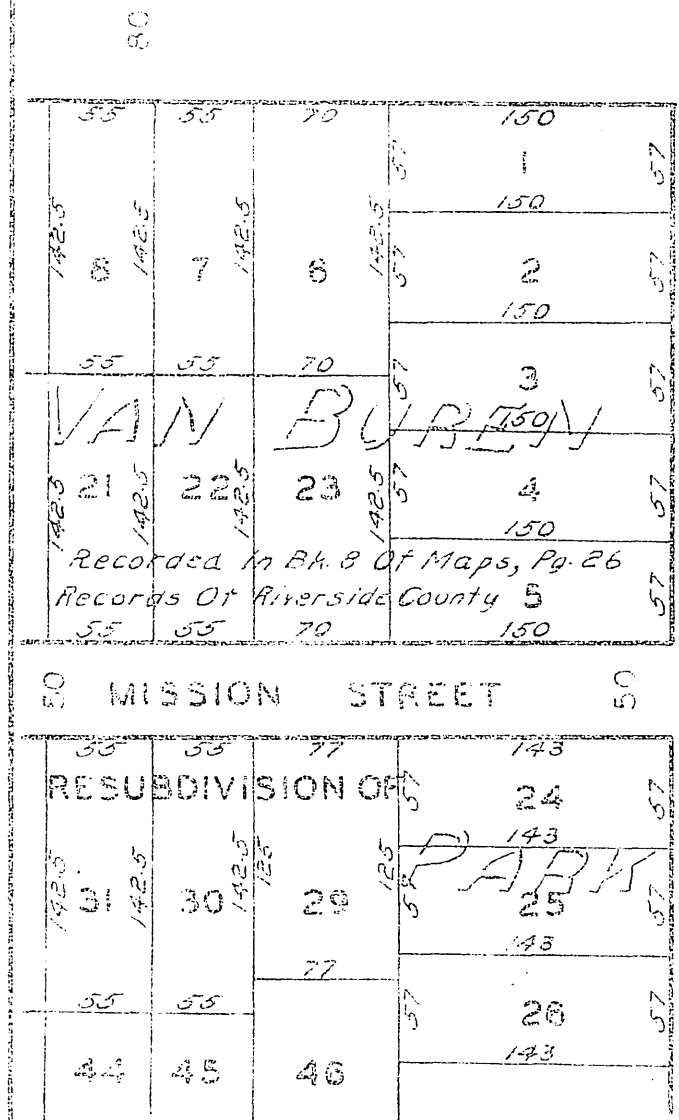 80
55 55 70 150
57 1 57
150
142.5 8 142.5 7 142.5 6 142.5 57 2 57
150
55 55 70
57 3 57
VAN BUREN
150
142.5 21 142.5 22 142.5 23 142.5 57 4 57
150
Recorded In Bk. 8 Of Maps, Pg. 26
Records Of Riverside County
5 57
55 55 70 150
50 MISSION STREET 50
55 55 77 143
RESUBDIVISION OF
57 24 57
143
PARK
142.5 31 142.5 30 142.5 125 29 125 57 25 57
143
77
55 55
57 26 57
143
44 45 46